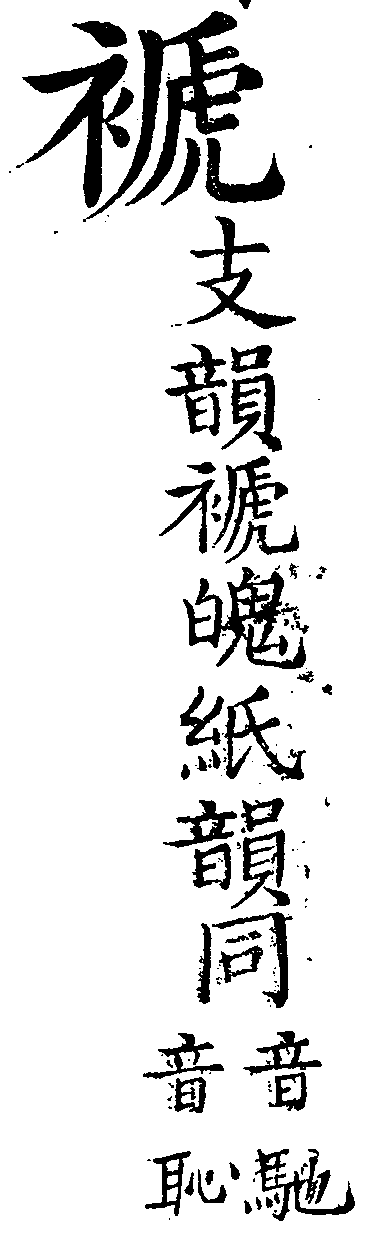 褫支韻褫魄紙韻同
音馳
音恥